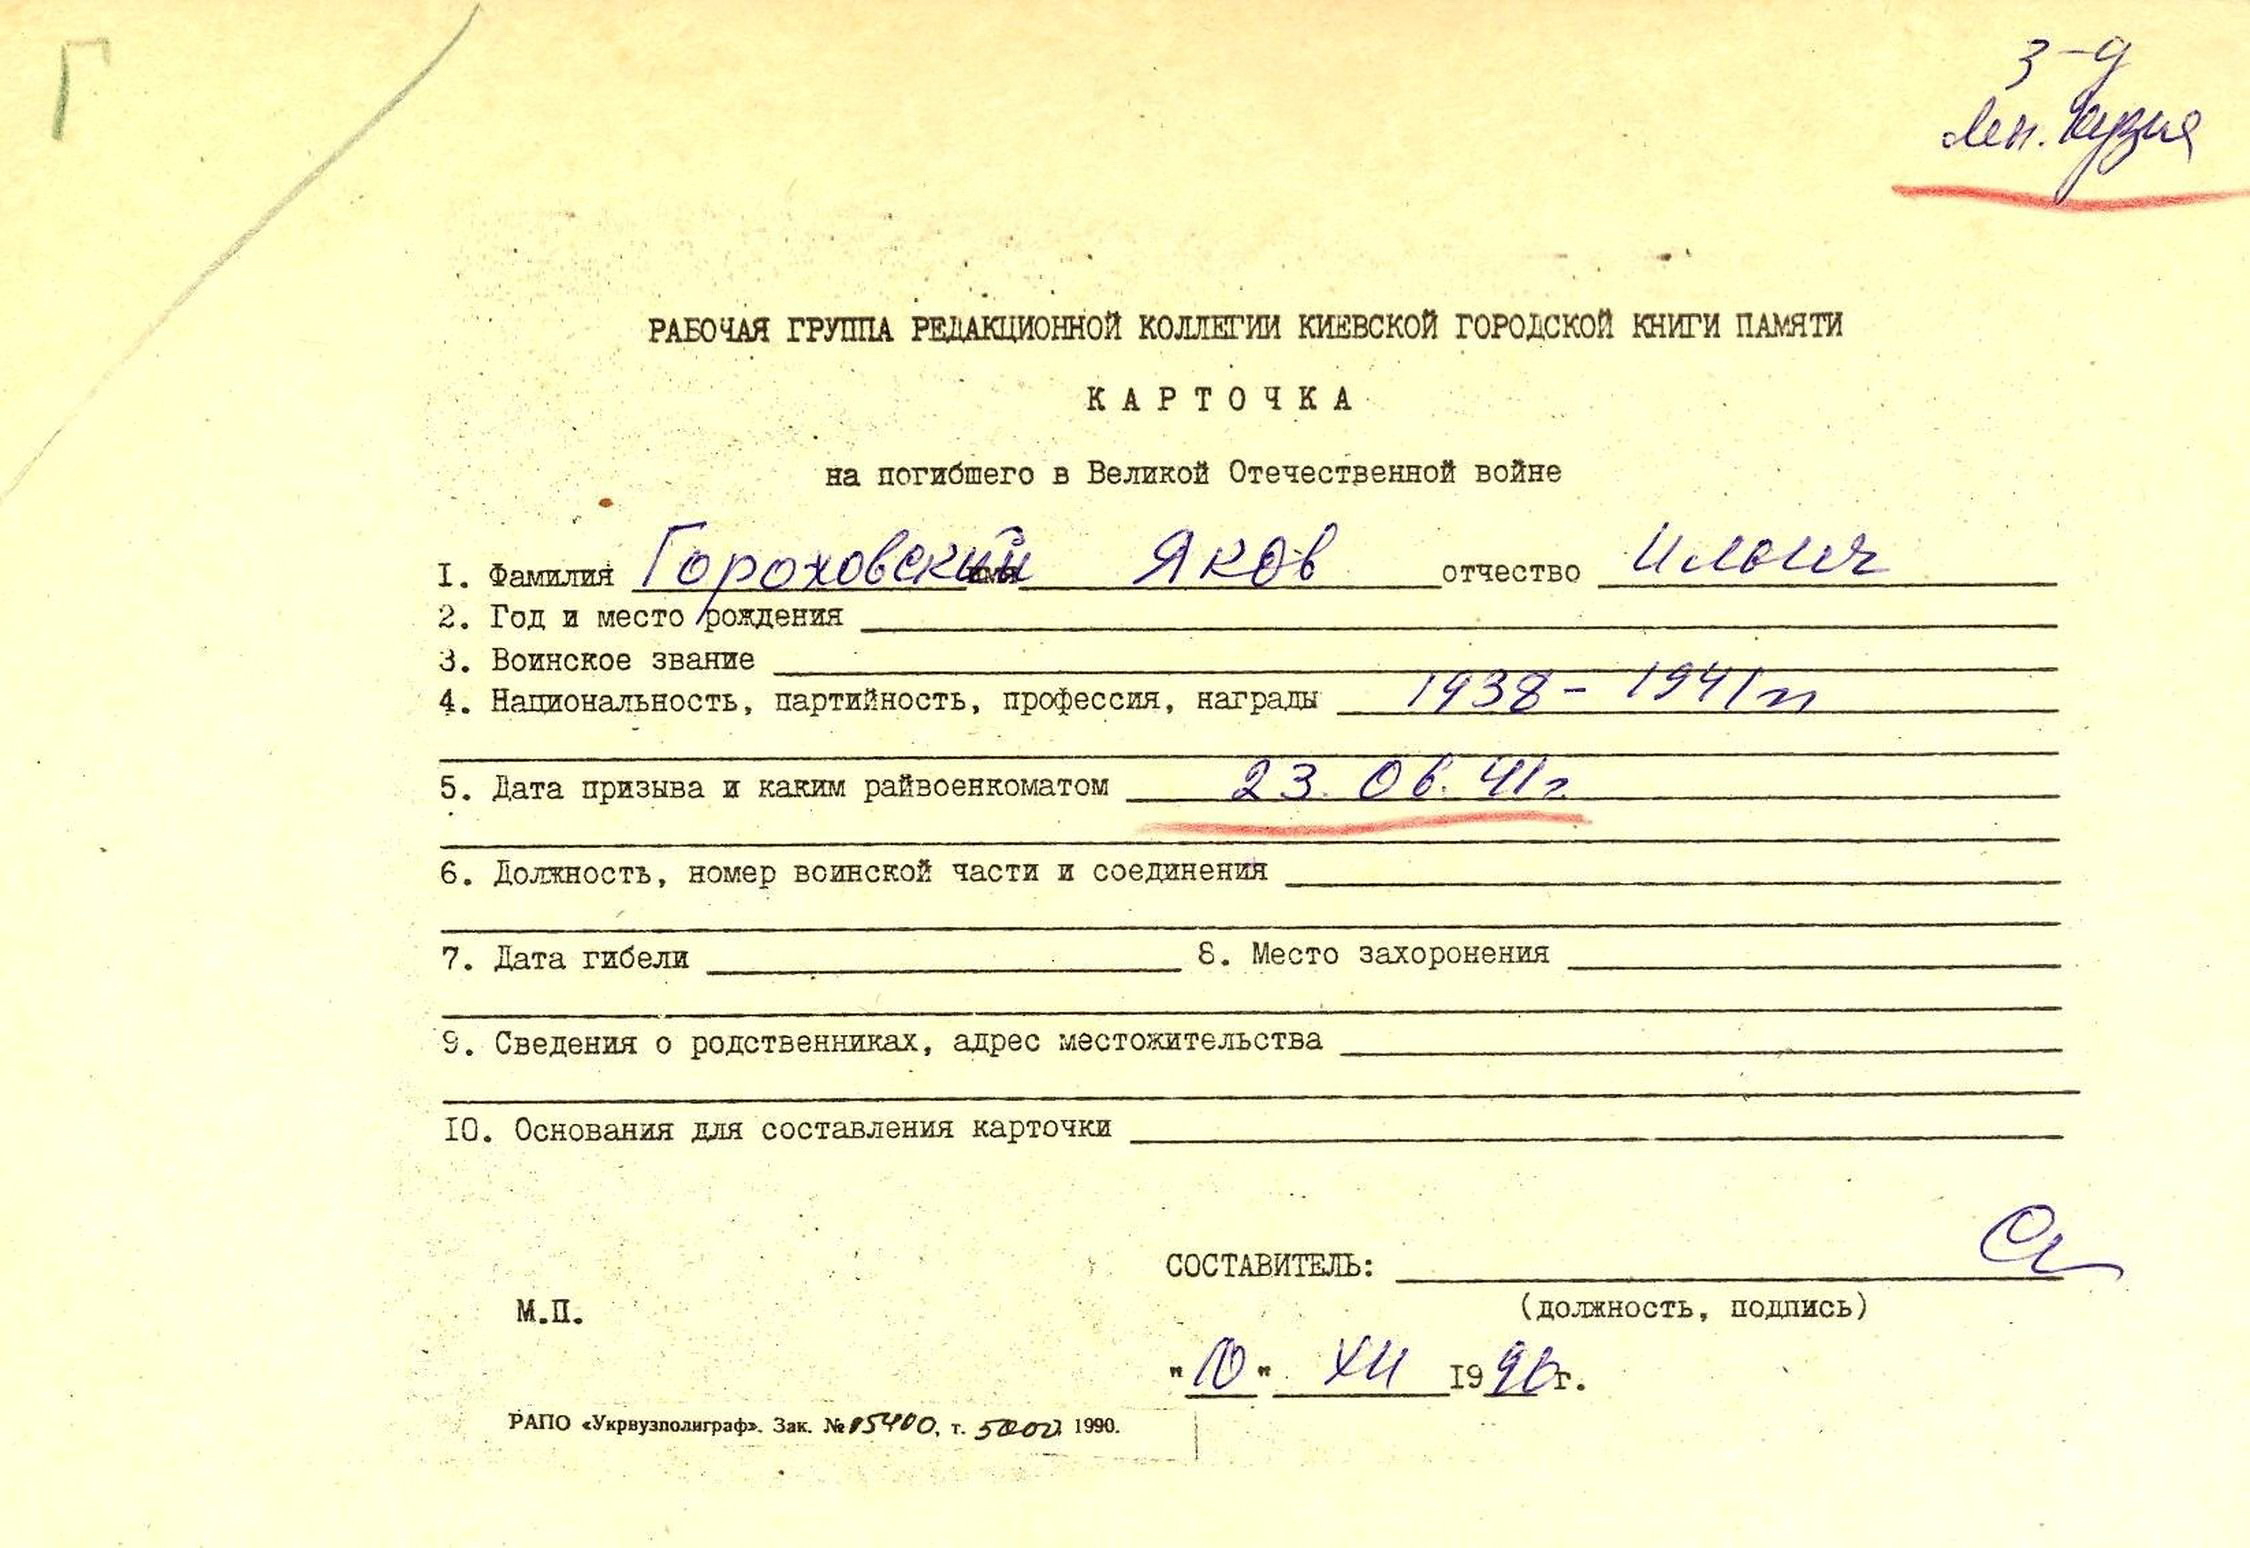 Г
з-д
Лен. кузня
РАБОЧАЯ ГРУППА РЕДАКЦИОННОЙ КОЛЛЕГИИ КИЕВСКОЙ ГОРОДСКОЙ КНИГИ ПАМЯТИ
КАРТОЧКА
на погибшего в Великой Отечественной войне
I. Фамилия Гороховский имя Яков отчество Ильич
2. Год и место рождения
3. Воинское звание
4. Национальность, партийность, профессия, награды 1938 - 1941 гг
5. Дата призыва и каким райвоенкоматом 23. 06. 41г.
6. Должность, номер воинской части и соединения
7. Дата гибели 8. Место захоронения
9. Сведения о родственниках, адрес местожительства
IO. Основания для составления карточки
СОСТАВИТЕЛЬ:
М.П. (должность, подпись)
"10" XII 1990г.
РАПО «Укрвузполиграф». Зак. № 05400, т. 5000 1990.